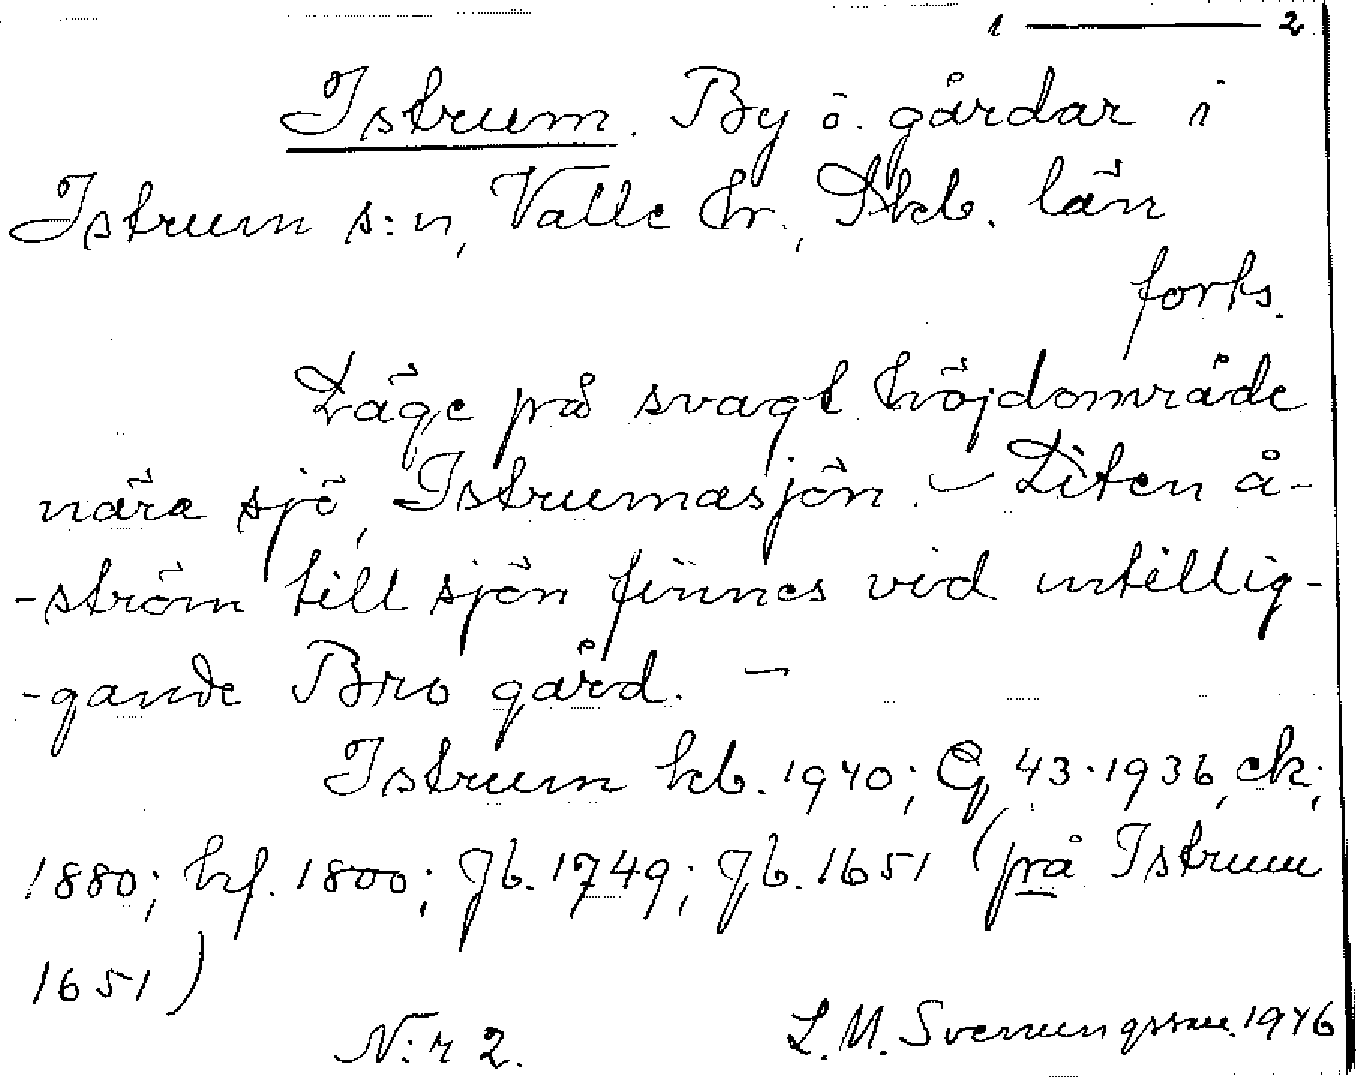 1 — 2
Istrum. By o. gårdar i
Istrum s:n, Valle hr., Skb. län
forts.
Läge på svagt höjdområde
nära sjö, Istrumasjön. – Liten å-
-ström till sjön finnes vid intillig-
-gande Bro gård. –
Istrum kb. 1940; G 43. 1936, ek;
1880; hf. 1800; Jb. 1749; Jb. 1651 (på Istrum
1651)
N:r 2. L. M. Svenungsson. 1946